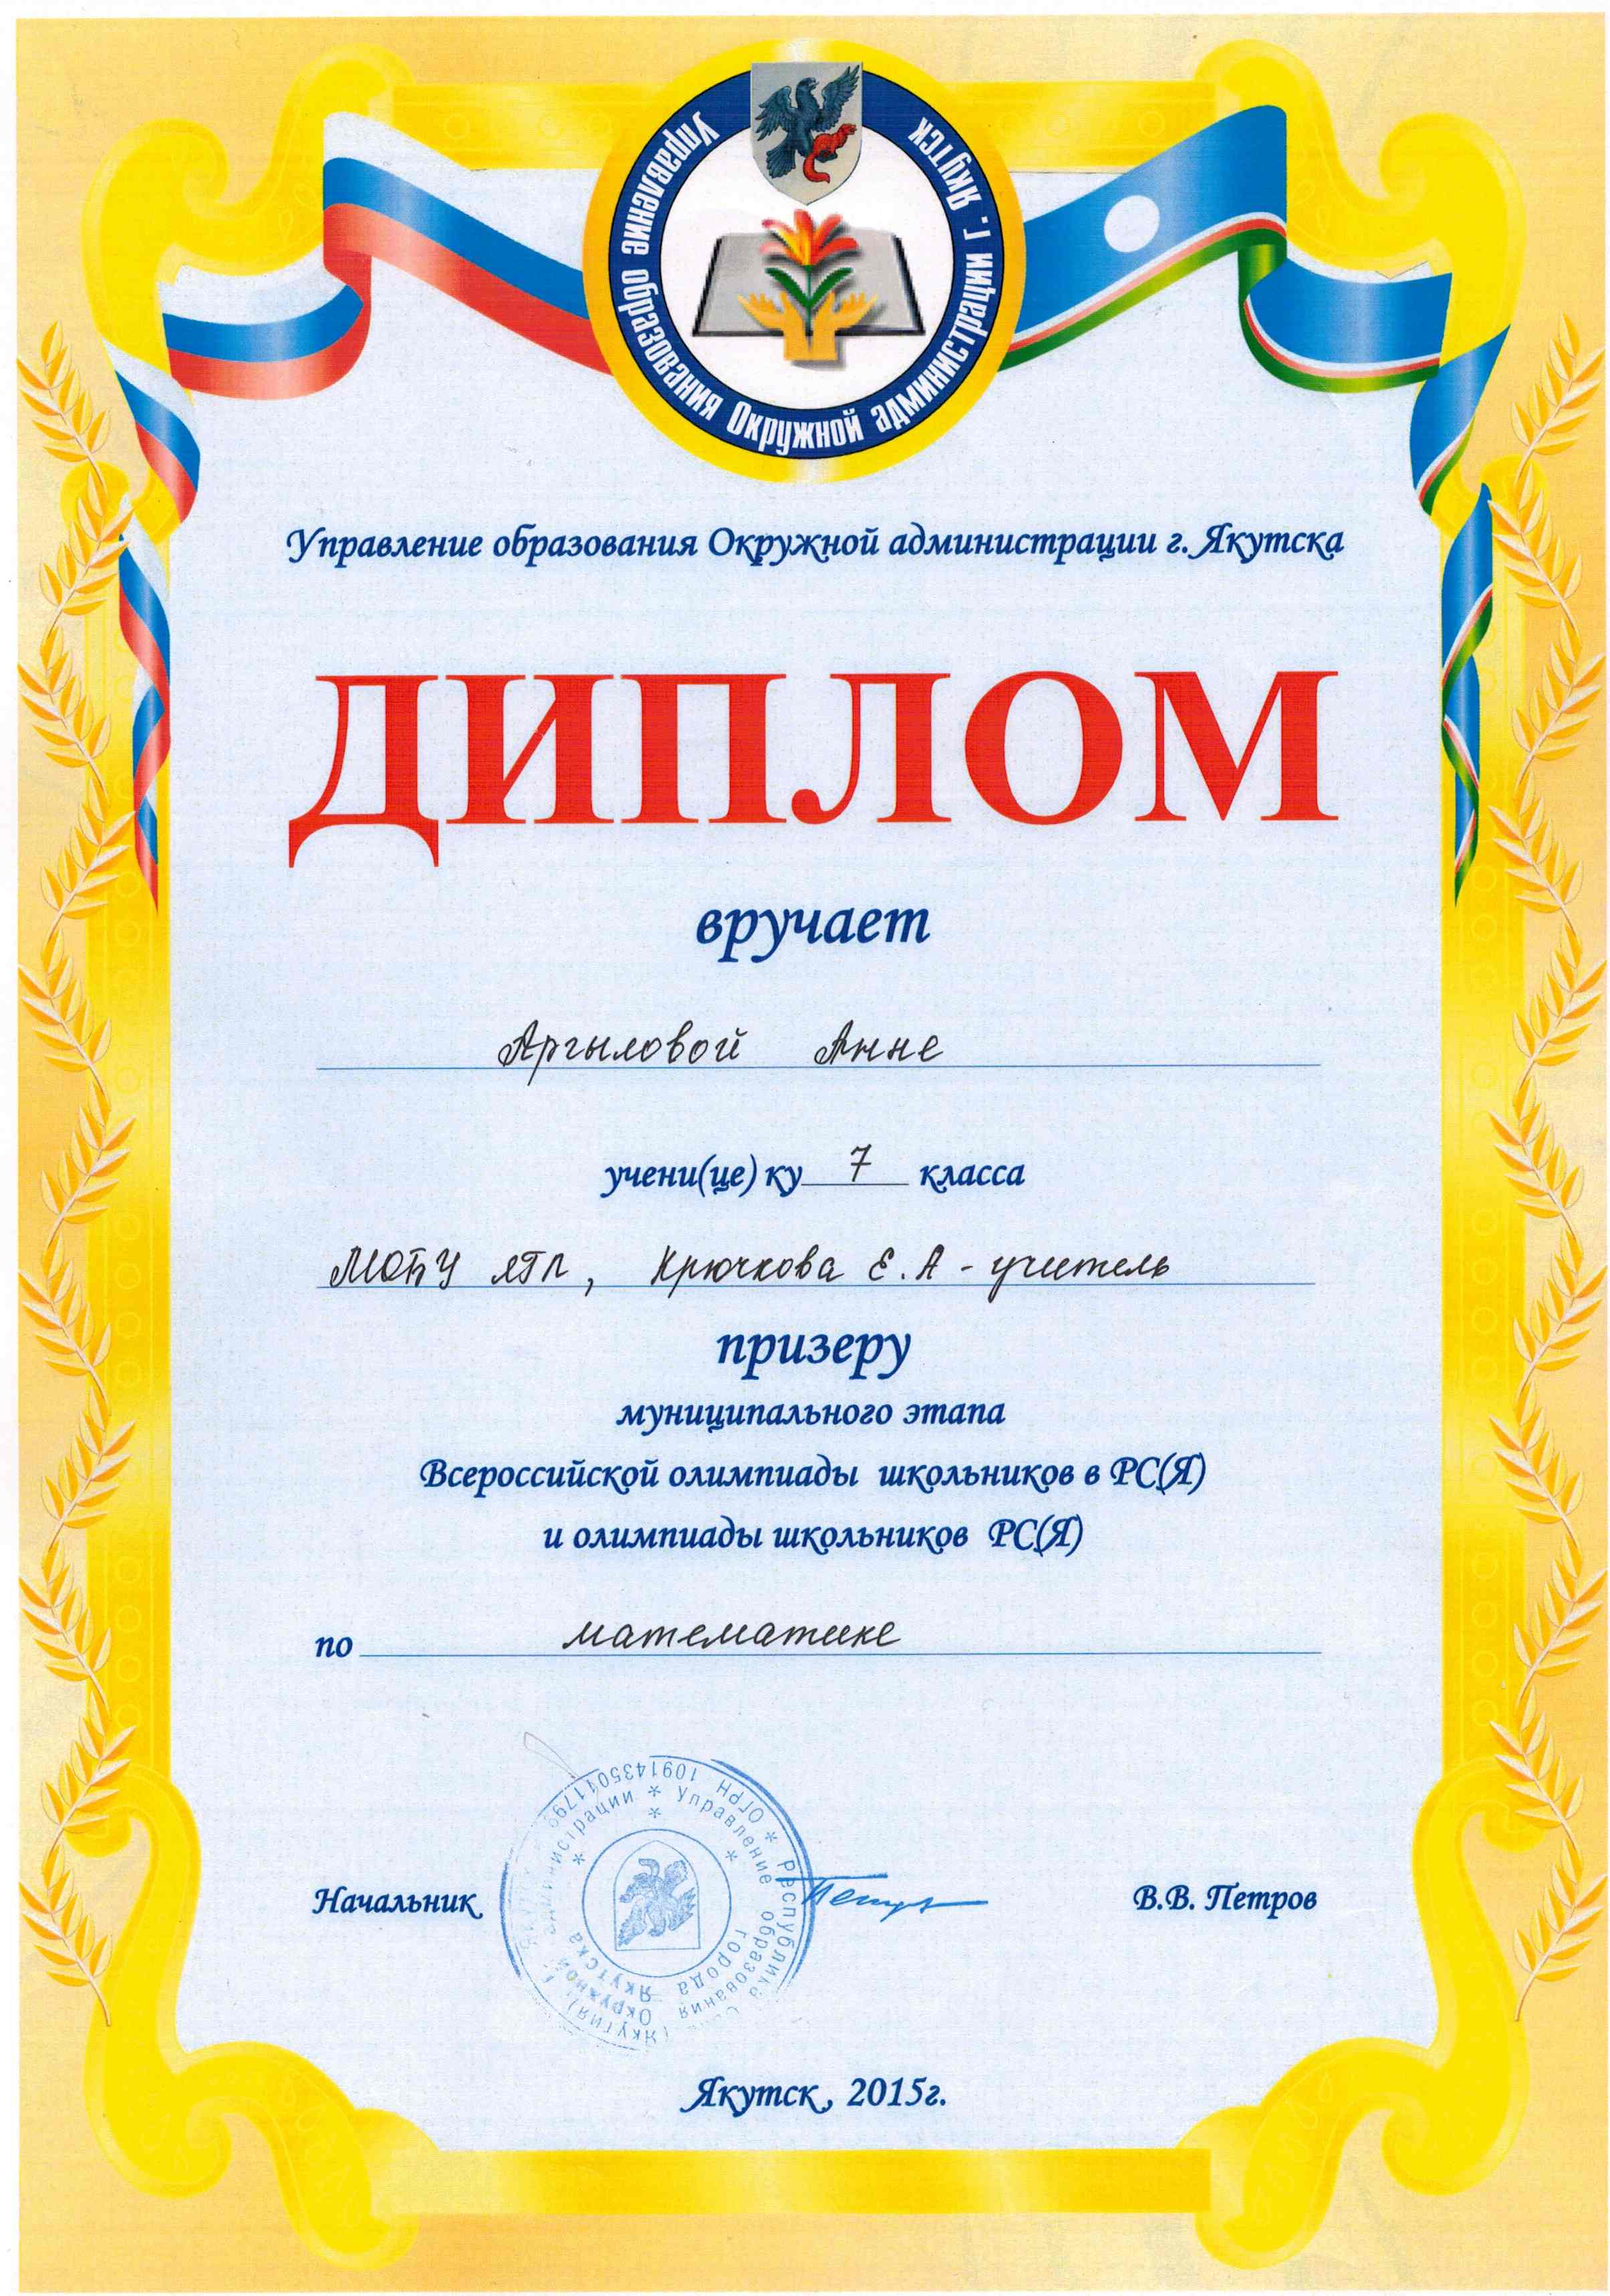 Управление образования Окружной администрации г. Якутск
Управление образования Окружной администрации г. Якутска
ДИПЛОМ
вручает
Аргыловой Анне
учени(це) ку 7 класса
МОБУ ЯГЛ, Крючкова Е.А - учитель
призеру
муниципального этапа
Всероссийской олимпиады школьников в РС(Я)
и олимпиады школьников РС(Я)
по математике
Республика
(Якутия)
ОГРН
Управление образования
Окружной администрации
города Якутска
Начальник
В.В. Петров
Якутск, 2015г.